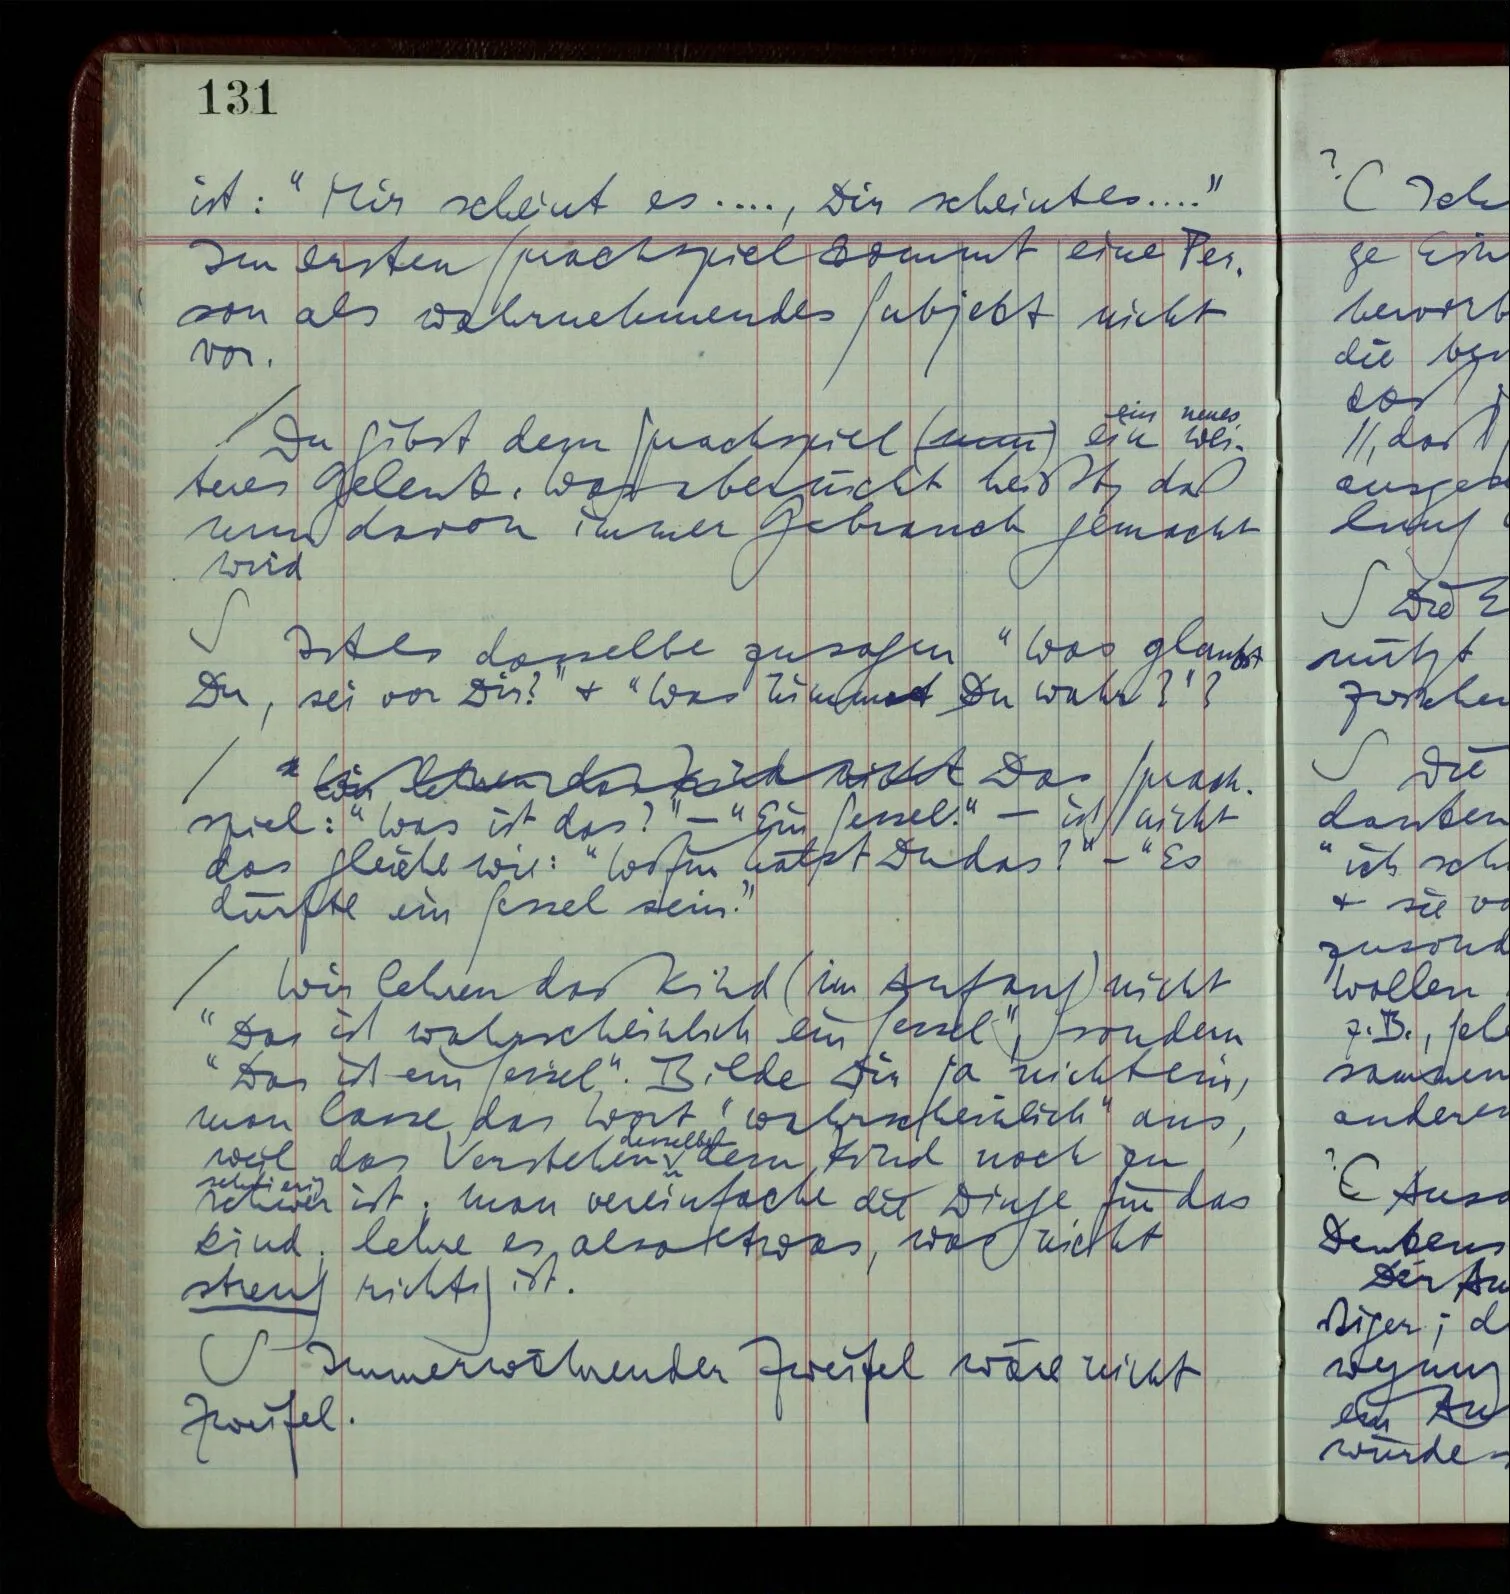 131
ist: “Mir scheint es ...., Dir scheint es ....”
Im ersten Sprachspiel kommt eine Per-
son als wahrnehmendes Subjekt nicht
vor.
ein neues
/ Du gibst dem Sprachspiel (nun) ein wei-
teres Gelenk. Was aber nicht heißt, daß
nun davon immer Gebrauch gemacht
wird
∫ Ist es dasselbe zu sagen “Was glaubst
Du, sei vor Dir?” + “Was nimmst Du wahr?”?
/ “Wir lehren das Kind nicht Das Sprach-
spiel: “Was ist das?” – “Ein Sessel.” – ist nicht
das gleiche wie: “Wofür hältst Du das?” – “Es
dürfte ein Sessel sein.”
/ Wir lehren das Kind (im Anfang) nicht
“Das ist wahrscheinlich ein Sessel”, sondern
“Das ist ein Sessel”. Bilde Dir ja nicht ein,
man lasse das Wort “wahrscheinlich” aus,
desselben
weil das Verstehen dem Kind noch zu
schwierig
schwer ist; man vereinfache die Dinge für das
Kind; lehre es also etwas, was nicht
streng richtig ist.
∫ Immerwährender Zweifel wäre nicht
Zweifel.
? ( Ich
die
∫ Die
nützt
∫ Die
+ sie
wollen
z.B.,
anderen
? (
Denkens
würde